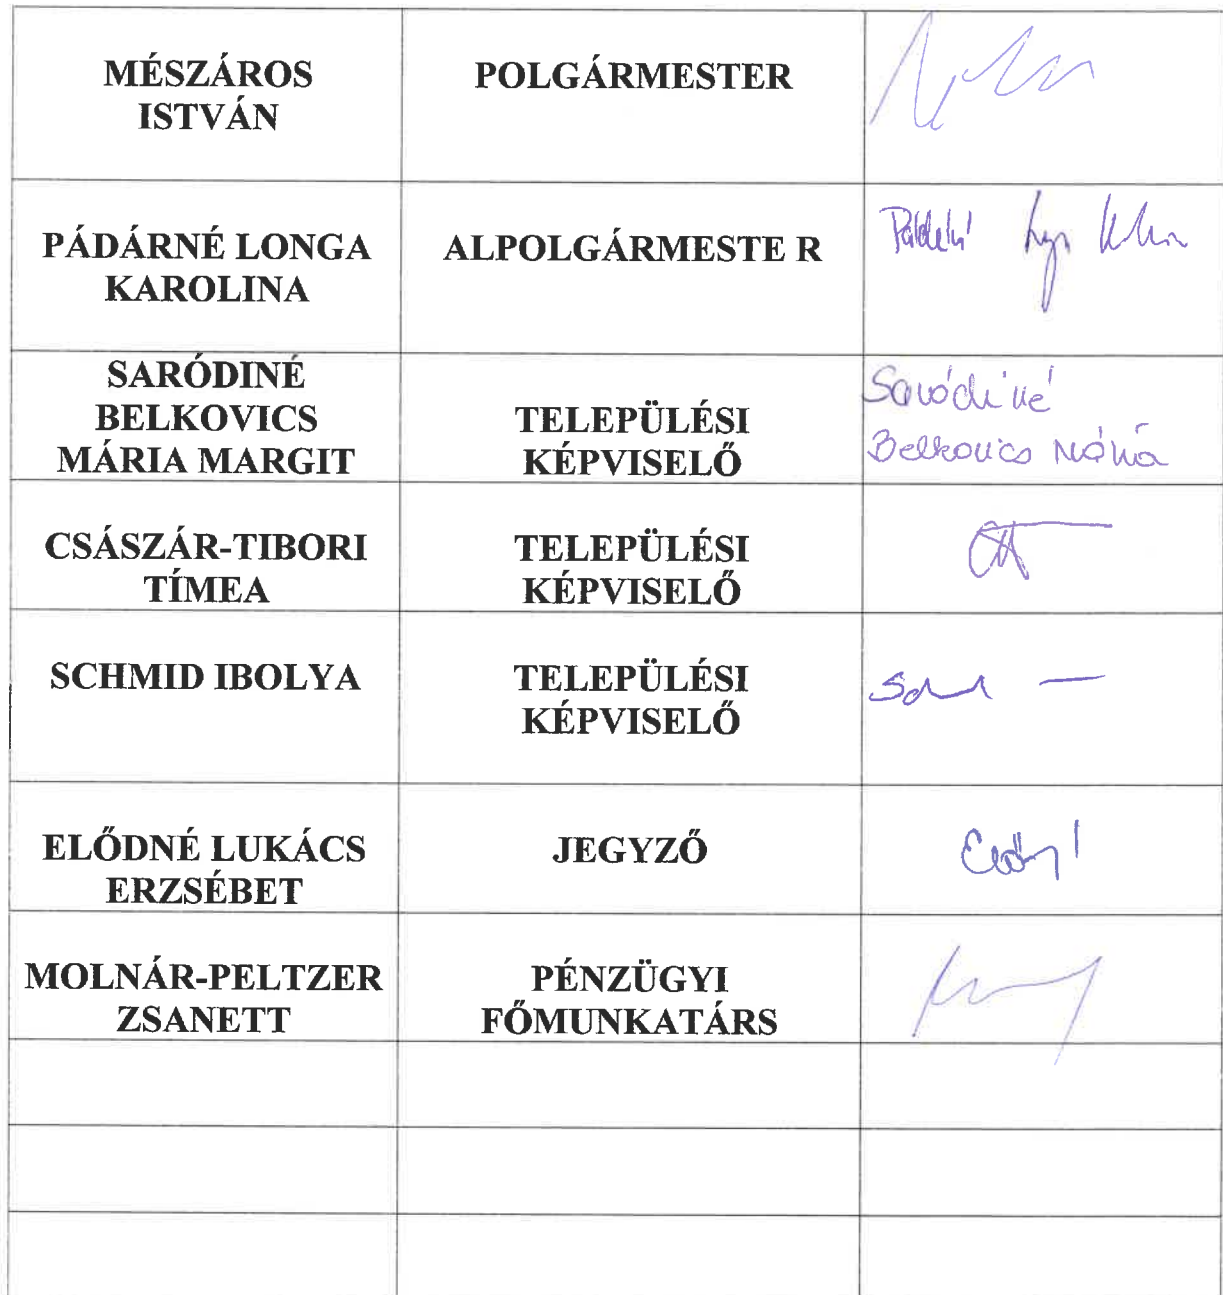 MÉSZÁROS
ISTVÁN
POLGÁRMESTER
PÁDÁRNÉ LONGA
KAROLINA
ALPOLGÁRMESTE R
SARÓDINÉ
BELKOVICS
MÁRIA MARGIT
TELEPÜLÉSI
KÉPVISELŐ
Saródiné
Belkovics Mária
CSÁSZÁR-TIBORI
TÍMEA
TELEPÜLÉSI
KÉPVISELŐ
SCHMID IBOLYA
TELEPÜLÉSI
KÉPVISELŐ
ELŐDNÉ LUKÁCS
ERZSÉBET
JEGYZŐ
MOLNÁR-PELTZER
ZSANETT
PÉNZÜGYI
FŐMUNKATÁRS